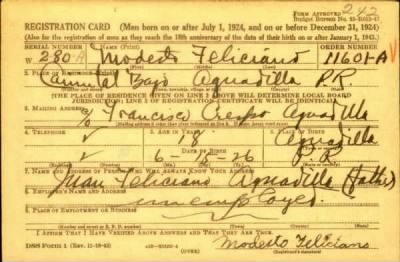 FORM APPROVED
242
Budget Bureau No.
REGISTRATION CARD (Men born on or after July 1, 1924, and on or before December 31, 1924)
(Also for the registration of men as they reach the 18th anniversary of the date of their birth on or after January 1, 1943.)
SERIAL NUMBER 1. NAME (Print) ORDER NUMBER
W 280-A Modesto Feliciano 11601-A
2. PLACE OF RESIDENCE (Print)
Aguadilla P.R.
[THE PLACE OF RESIDENCE GIVEN ON LINE 2 ABOVE WILL DETERMINE LOCAL BOARD
JURISDICTION; LINE 2 OF REGISTRATION CERTIFICATE WILL BE IDENTICAL]
3. MAILING ADDRESS
Francisco Crespo Aguadilla
4. TELEPHONE 5. AGE IN YEARS 6. PLACE OF BIRTH
18 Aguadilla
DATE OF BIRTH
P.R.
7. NAME AND ADDRESS OF PERSON WHO WILL ALWAYS KNOW YOUR ADDRESS
Juan Feliciano Aguadilla (father)
8. EMPLOYER'S NAME AND ADDRESS
unemployed
9. PLACE OF EMPLOYMENT OR BUSINESS
I AFFIRM THAT I HAVE VERIFIED ABOVE ANSWERS AND THAT THEY ARE TRUE.
DSS Form 1
(OVER)
Modesto Feliciano